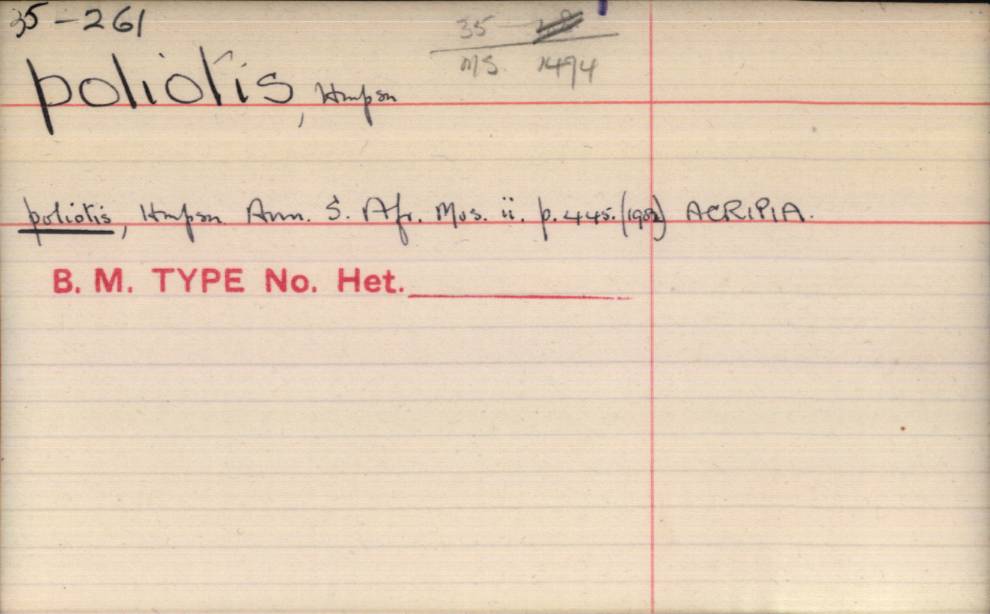 35-261
35
MS 1494
poliotis, Hmpsn
poliotis, Hmpsn Ann. S. Afr. Mus. ii. p.445.(1902) ACRIPIA.
B. M. TYPE No. Het.